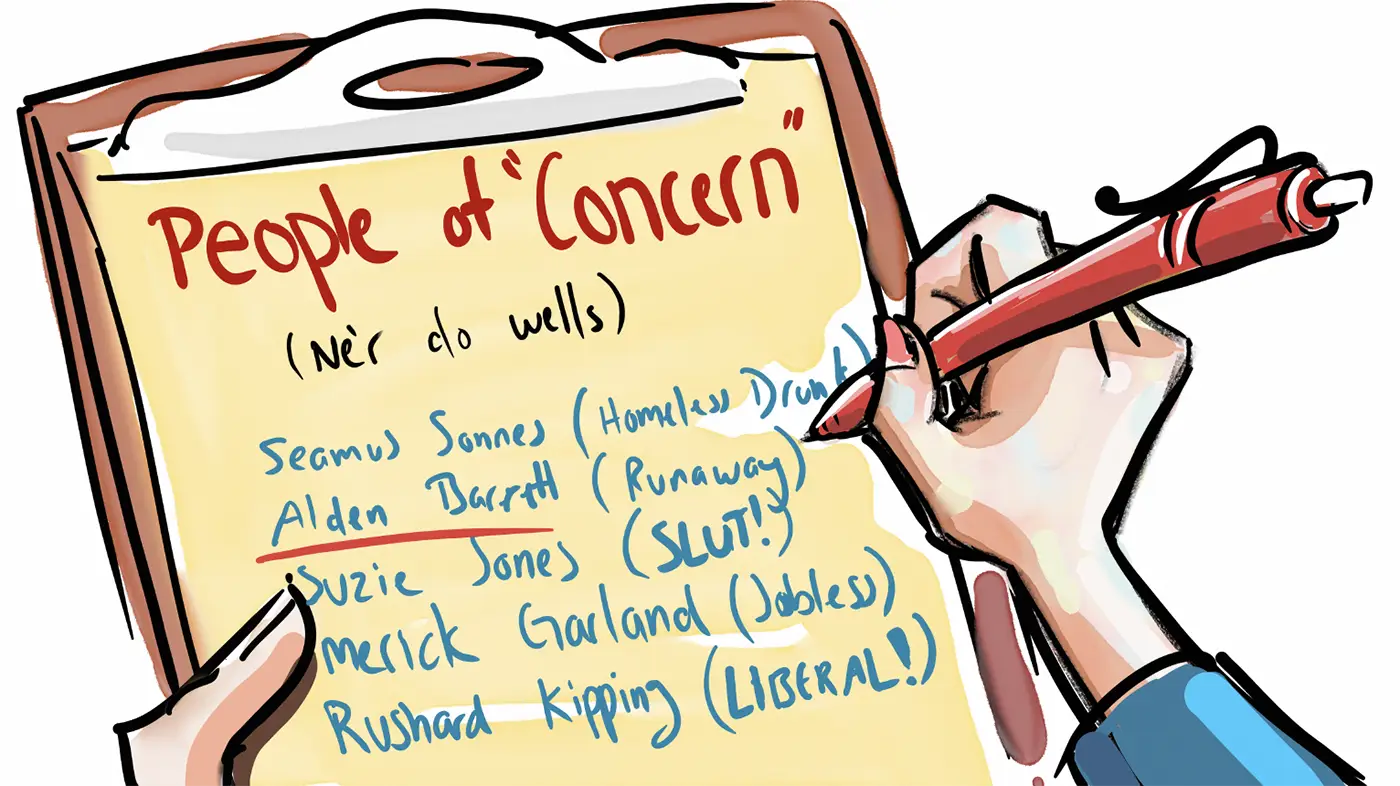 People of "Concern"
(Ne'r do wells)
Seamus Sonnes (Homeless Drunk)
Alden Barrett (Runaway)
Suzie Jones (SLUT!)
Merick Garland (Jobless)
Rushard Kipping (LIBERAL!)